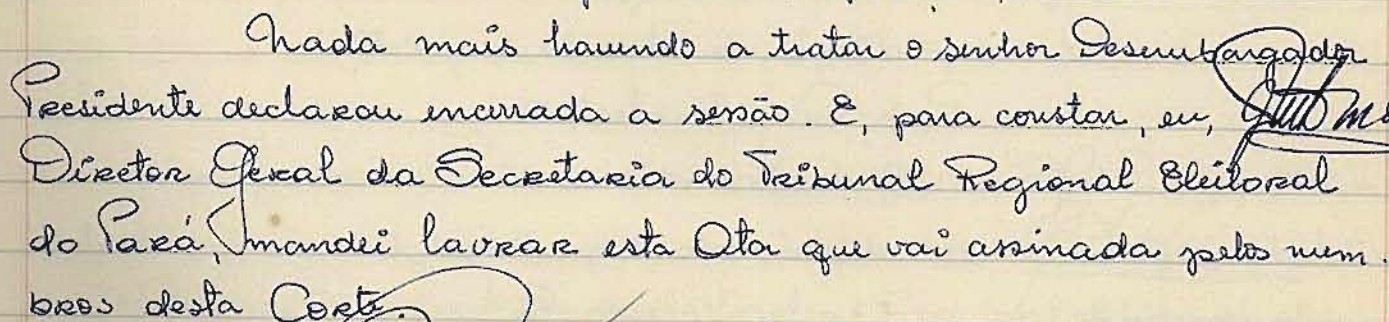 Nada mais havendo a tratar o senhor Desembargador
Presidente declarou encerrada a sessão. E, para constar, eu,
Diretor Geral da Secretaria do Tribunal Regional Eleitoral
do Pará, mandei lavrar esta Ata que vai assinada pelos mem
bros desta Corte.